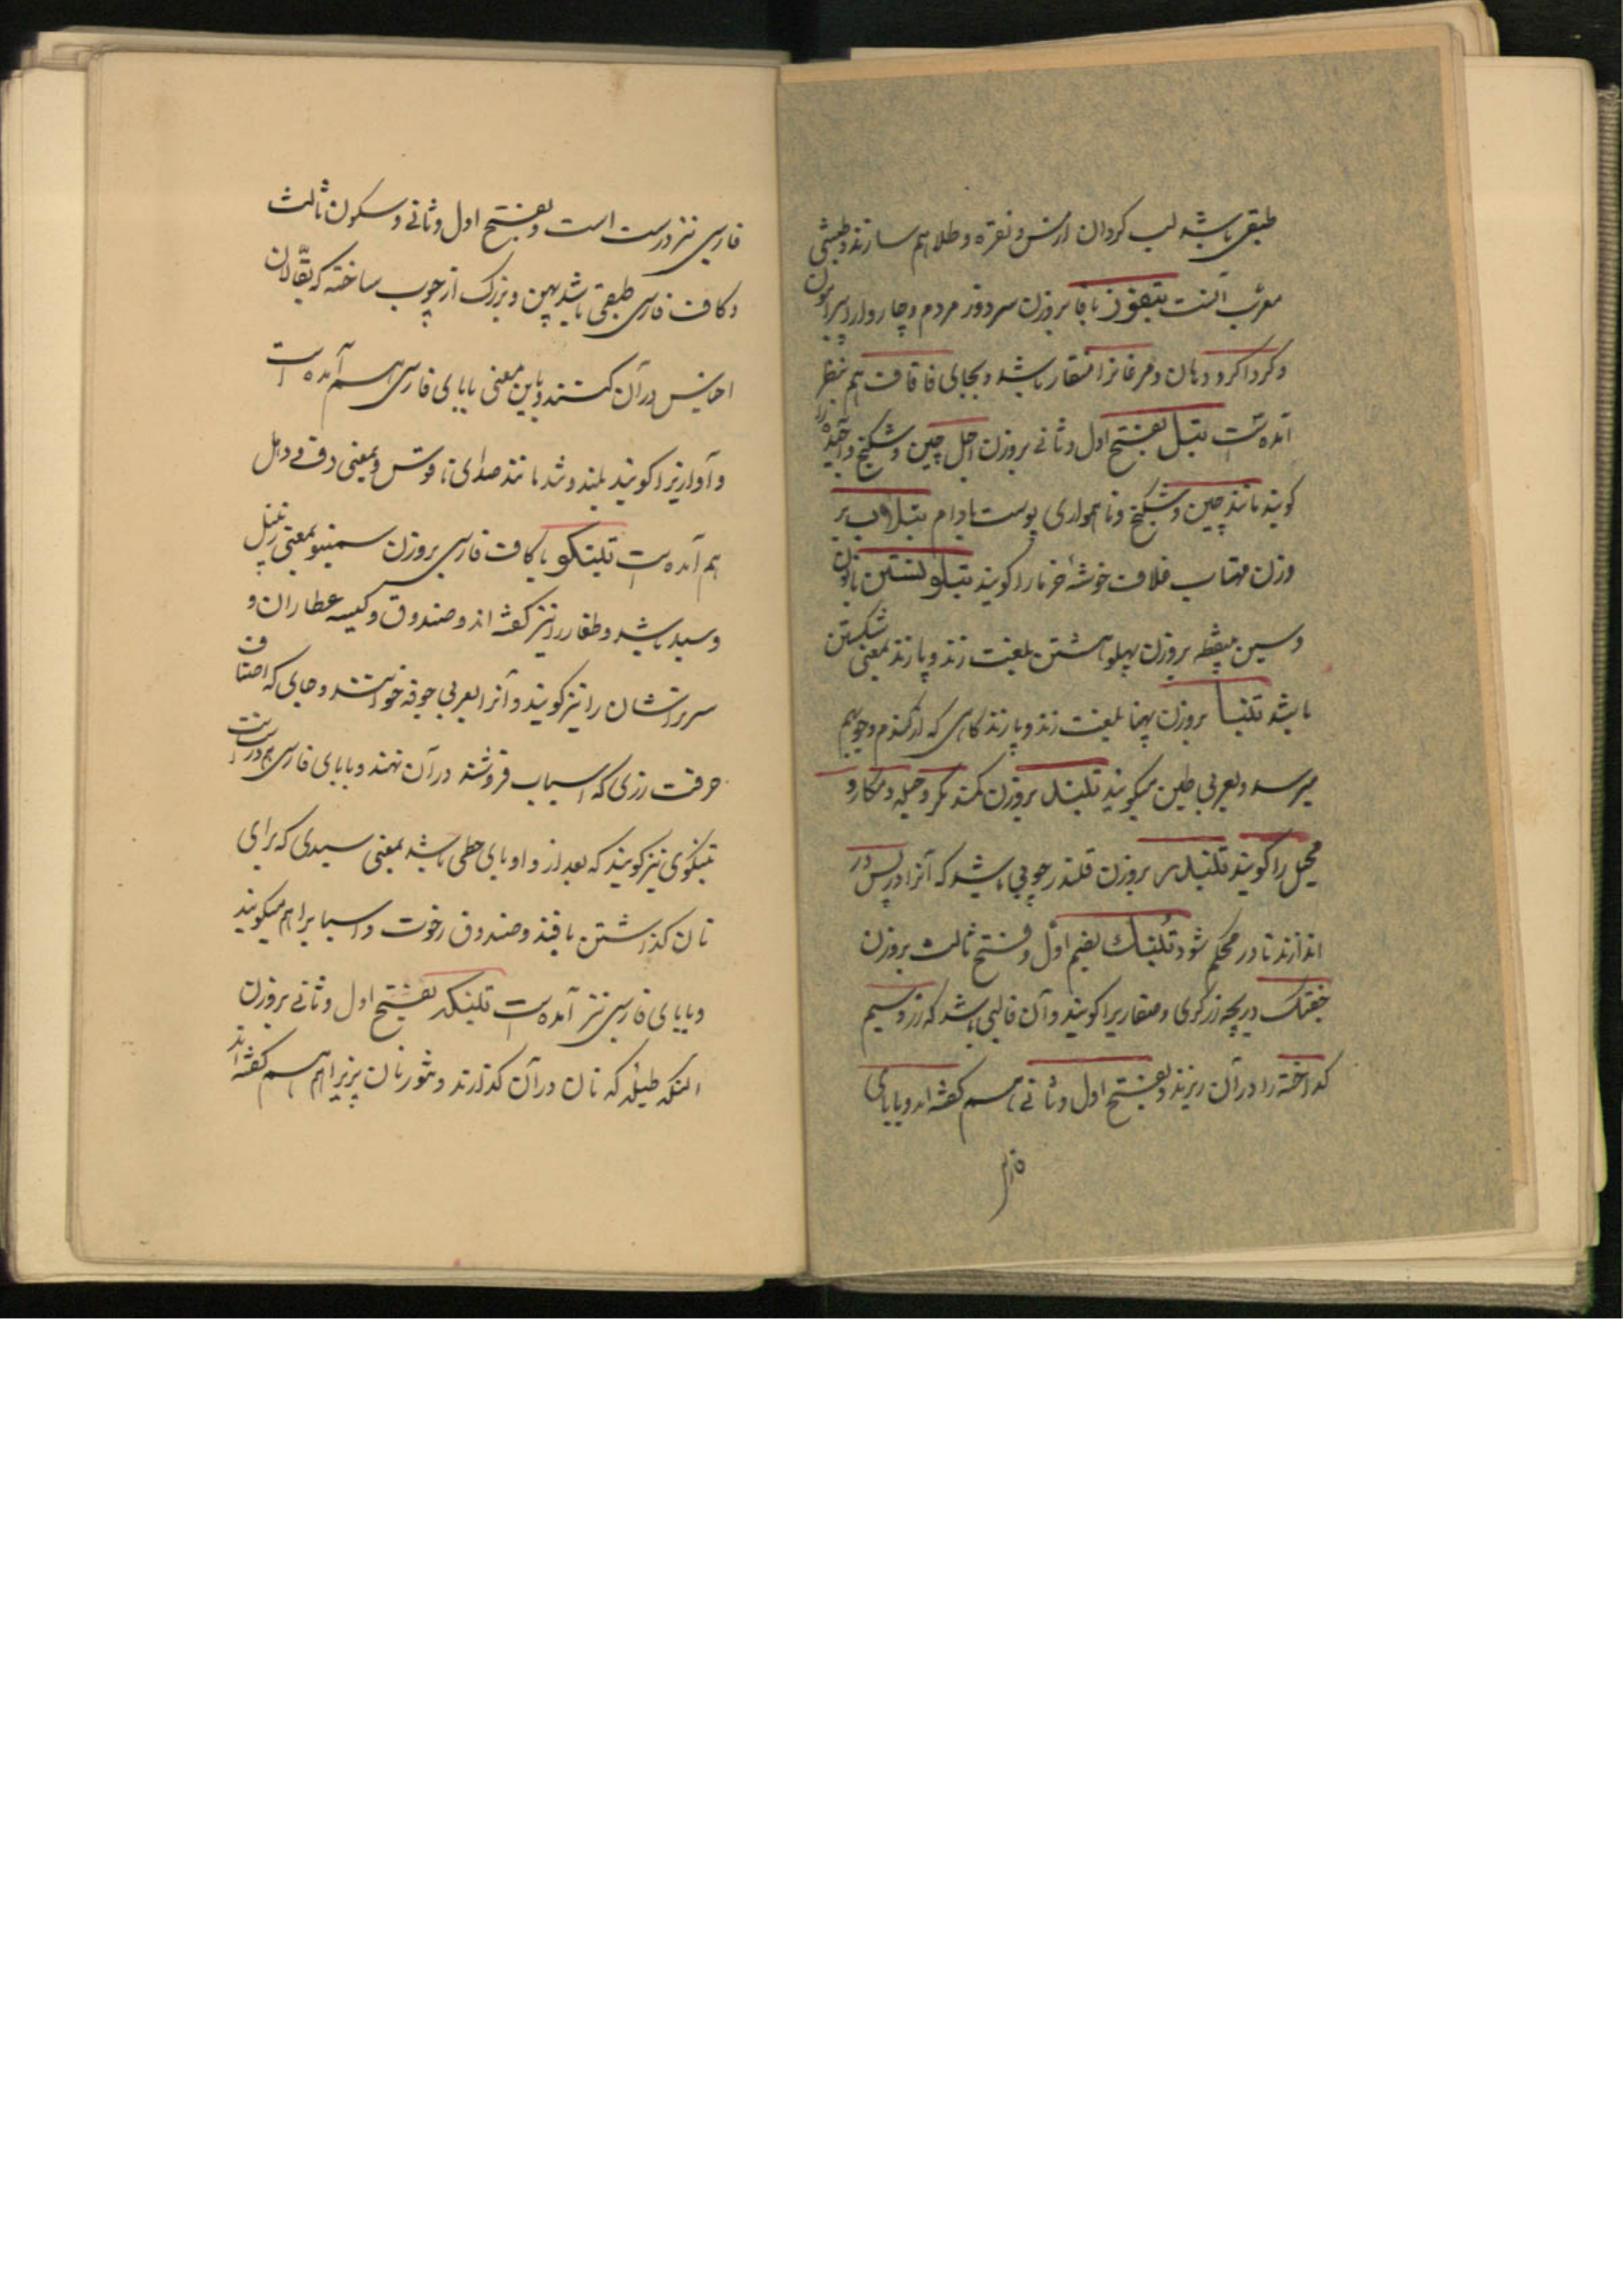 طبقی باشد لب گردان از مس و نقره و طلا هم سازند و طبشی
معرب آنست بتفوز با فا بروزن سردوز مردم و چاروا را پیرامون
و گرداگرد دهان و مرغانرا منقار باشد و بجای فا قاف هم بنظر
آمده است بتبل بفتح اول و ثانی بروزن اجل چین و شکنج را
گویند مانند چین و شکنج و ناهمواری پوست بادام بتبلاب بر
وزن مهتاب غلاف خوشه خرما را گویند بتبلونستن با نون
و سین بینقطه بروزن پهلو هشتن بلغت زند و پازند بمعنی شکستن
باشد تبنا بروزن پهنا بلغت زند و پازند کاهی که از گندم و جو بهم
میرسد و بعربی طین میگویند تبند بروزن کمند مکر و حیله و مکار و
محیل را گویند تبندر بروزن قلندر چوبی باشد که آنرا در پس در
اندازند تا در محکم شود تبنک بضم اول و فتح ثالث بروزن
خفتک دریچه زرگری و صفاریرا گویند و آن قالبی باشد که زر و سیم
گداخته را در آن ریزند و بفتح اول و ثانی هم گفته اند و با بای
فارسی
فارسی نیز درست است و بفتح اول و ثانی و سکون ثالث
و کاف فارسی طبقی باشد پهن و بزرگ از چوب ساخته که بقالان
اجناس در آن کنند و باین معنی با بای فارسی هم آمده است
و آوازیرا گویند بلند و تند مانند صدای ناقوس و بمعنی دف و دهل
هم آمده است تبنکو با کاف فارسی بروزن سمنبو بمعنی زنبیل
و سبد باشد و طغار را نیز گفته اند و صندوق و کیسه عطاران و
سرتراشان را نیز گویند و آنرا بعربی جونه خوانند و جای که اصناف
حرفت زری که اسباب فروشند در آن نهند و با بای فارسی هم درست است
تبنگوی نیز گویند که بعد از واو یای حطی باشد بمعنی سبدی که برای
نان گذاشتن بافند و صندوق رخوت و اسبابرا هم میگویند
و با بای فارسی نیز آمده است تبنکه بفتح اول و ثانی بروزن
النکه طبله که نان در آن گذارند و تنور نان پزیرا هم گفته اند